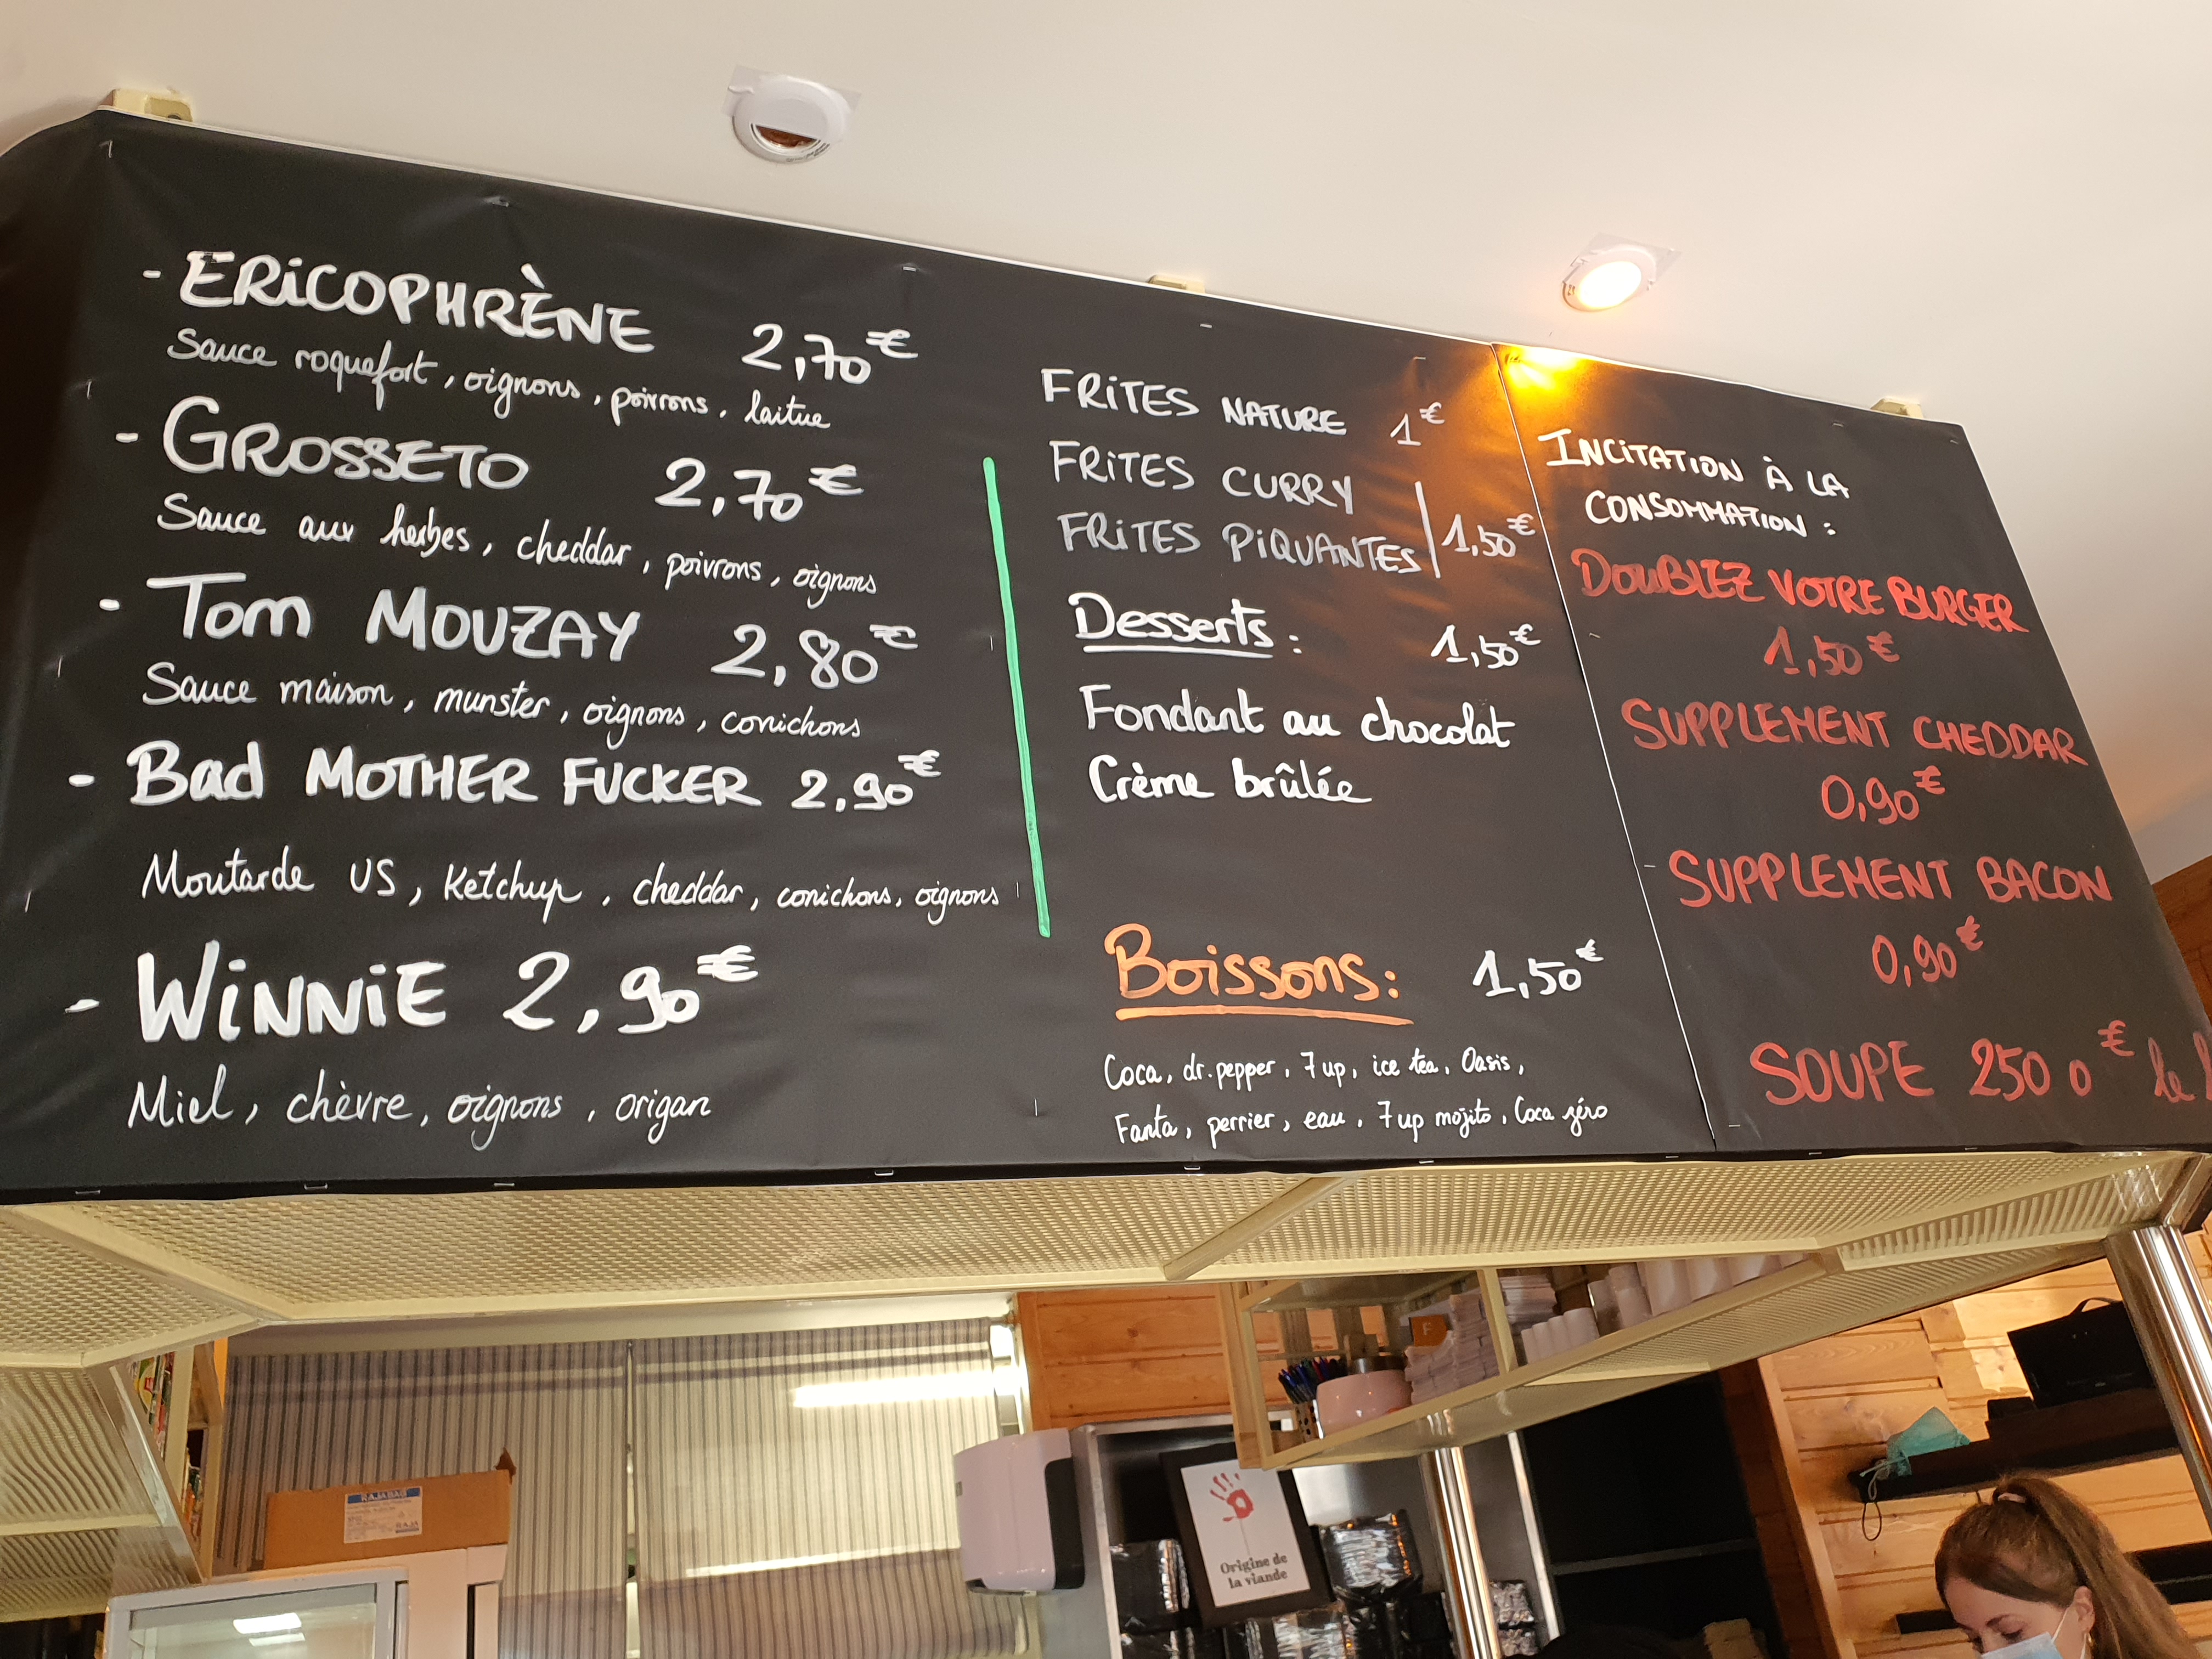 - ERICOPHRÈNE 2,70€
Sauce roquefort, oignons, poivrons, laitue
- GROSSETO 2,70€
Sauce aux herbes, cheddar, poivrons, oignons
- Tom MOUZAY 2,80€
Sauce maison, munster, oignons, cornichons
- Bad MOTHER FUCKER 2,90€
Moutarde US, Ketchup, cheddar, cornichons, oignons
- WINNIE 2,90€
Miel, chèvre, oignons, origan
FRITES NATURE 1€
FRITES CURRY
FRITES PIQUANTES 1,50€
Desserts : 1,50€
Fondant au chocolat
Crème brûlée
Boissons : 1,50€
Coca, dr.pepper, 7up, ice tea, Oasis,
Fanta, perrier, eau, 7up mojito, Coca zéro
INCITATION À LA
CONSOMMATION :
DOUBLEZ VOTRE BURGER
1,50€
SUPPLEMENT CHEDDAR
0,90€
SUPPLEMENT BACON
0,90€
SOUPE 2500€ le
RAJABAG
RAJA
F
Origine de
la viande